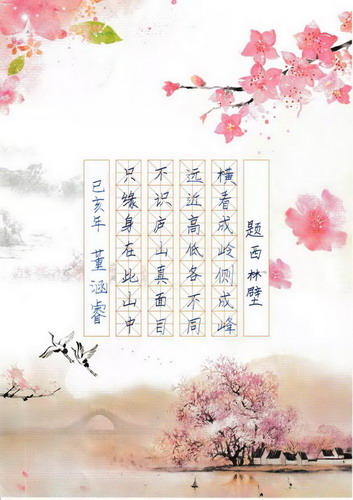 题西林壁
横看成岭侧成峰
远近高低各不同
不识庐山真面目
只缘身在此山中
己亥年 董涵睿